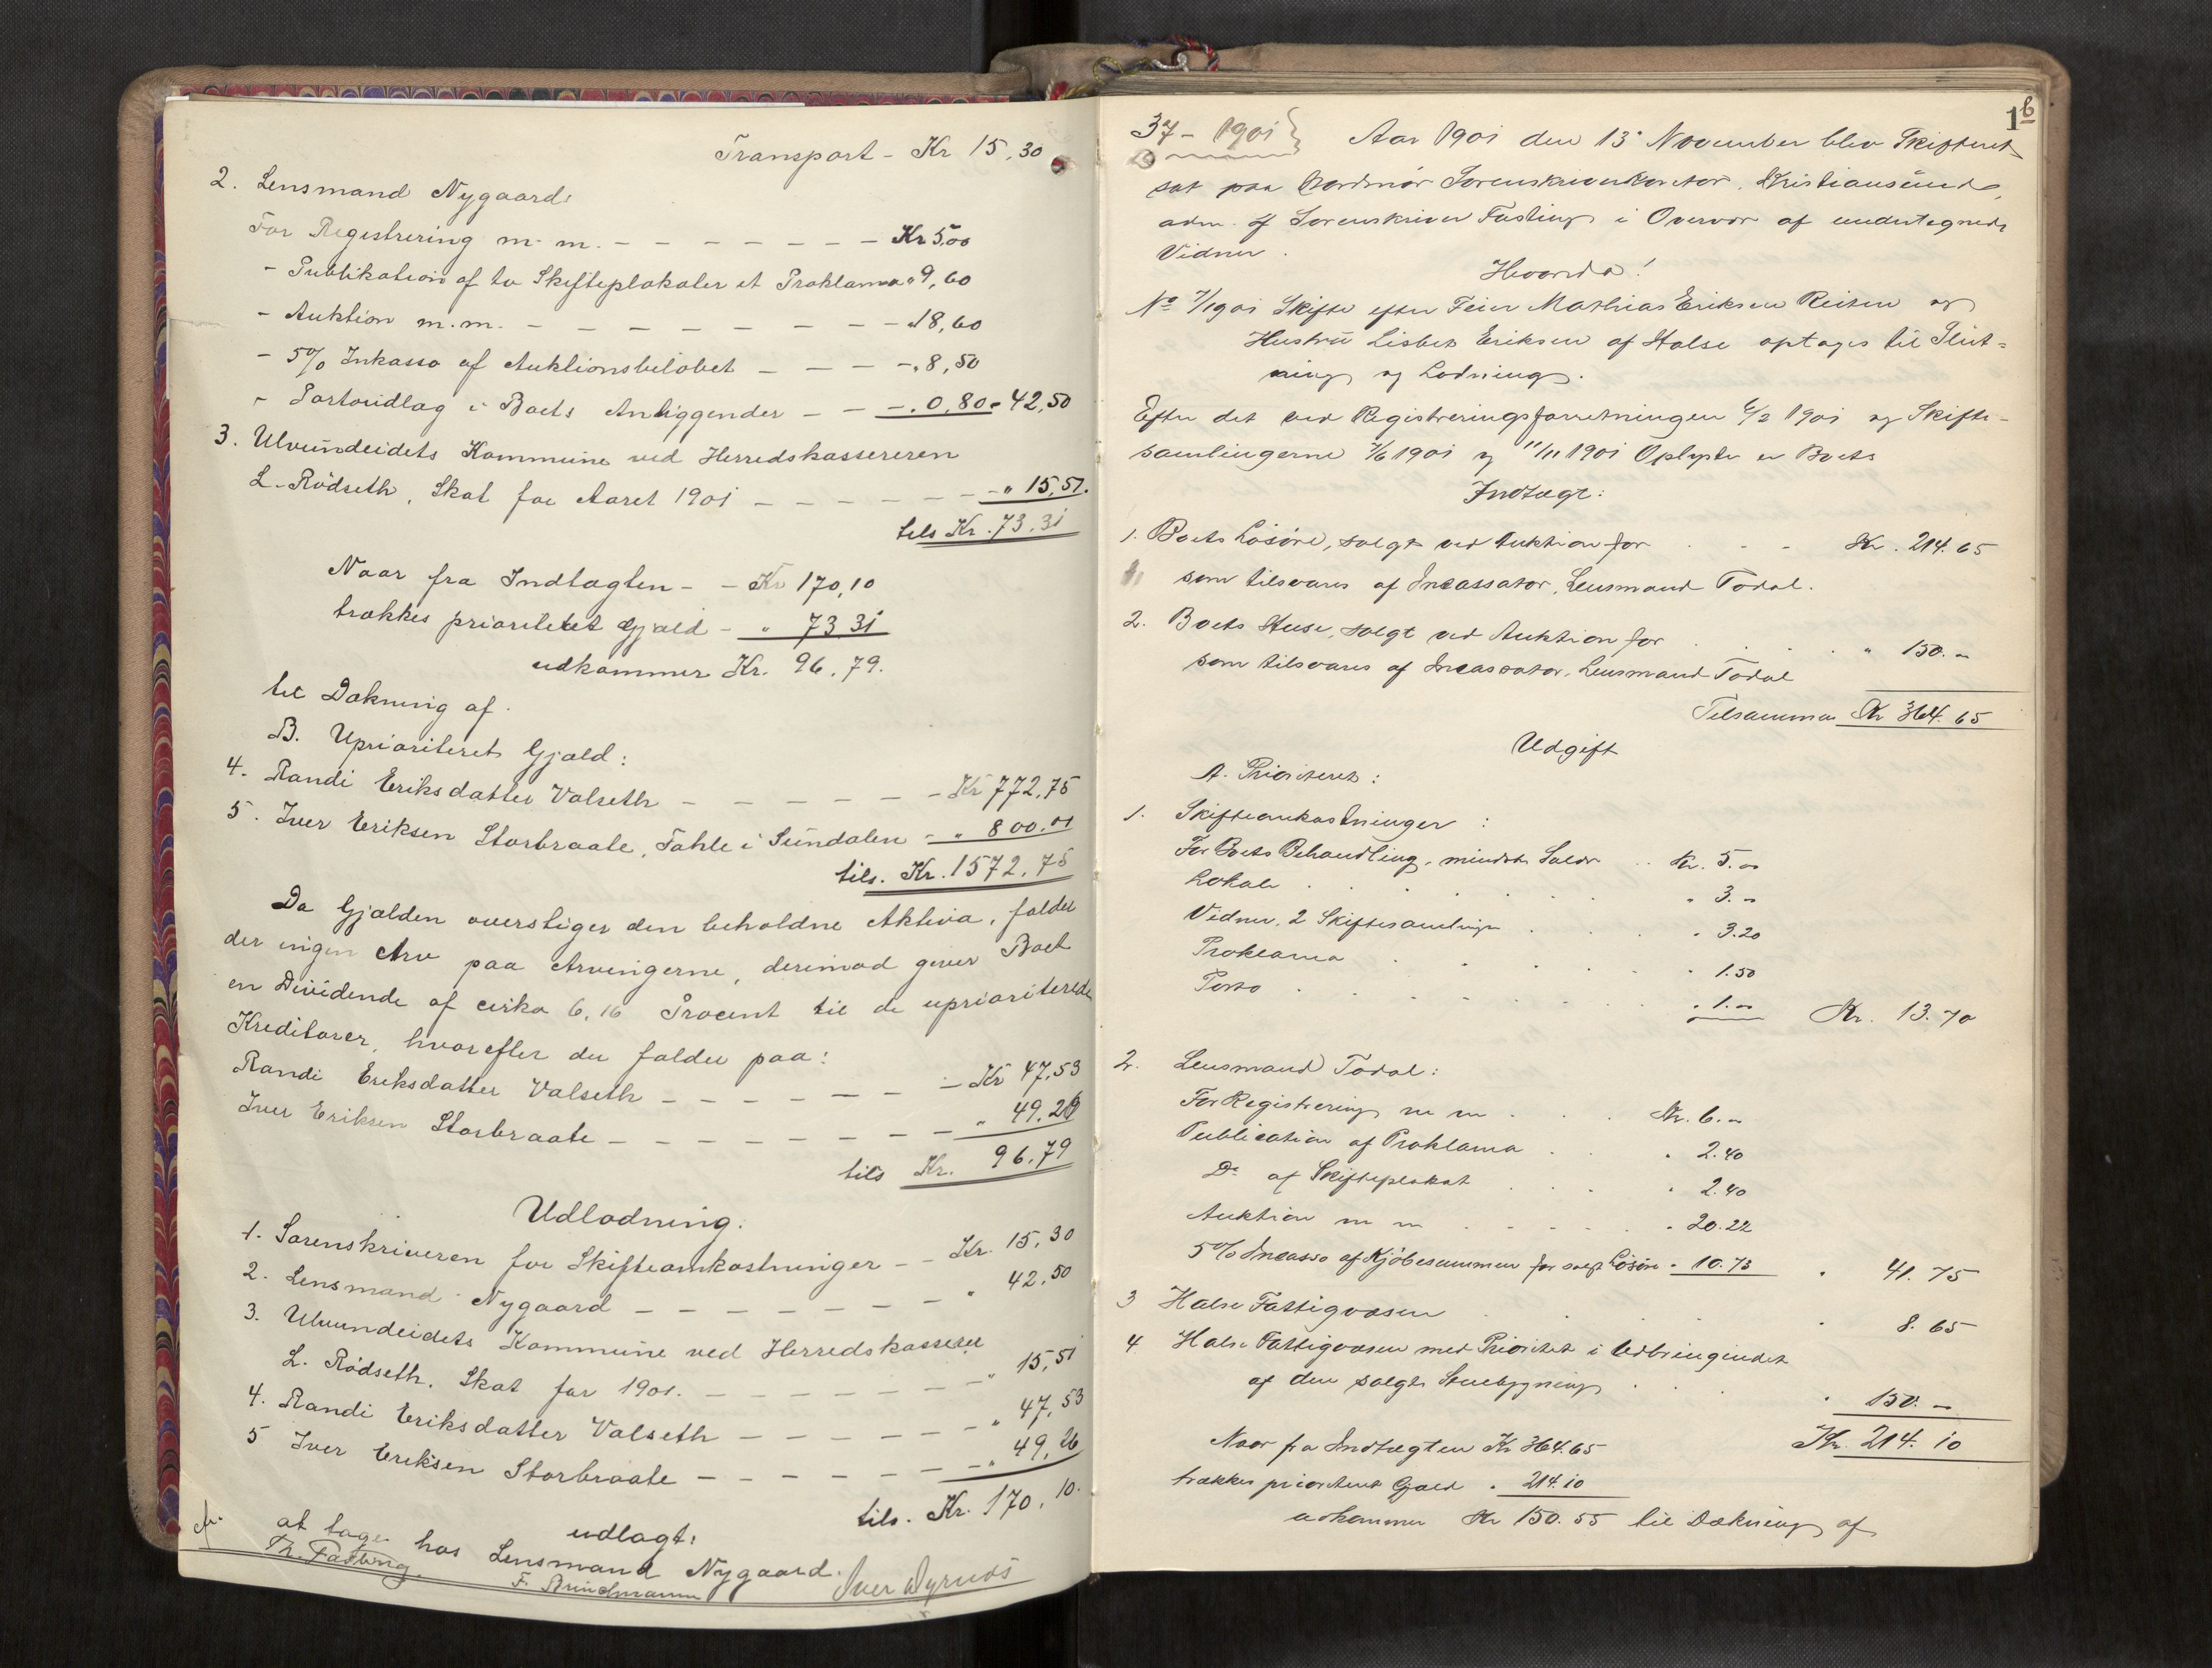 Transport - Kr 15,30
2. Lensmand Nygaard:
For Registrering m. m. - - - - - - - Kr 5,00
- Publikation af to Skifteplakater et Proklama " 9,60
- Auktion m. m. - - - - - - - - - " 18,60
- 5% Inkasso af Auktionsbeløbet - - - - " 8,50
- Portoudlag i Boets Anliggender - - - " 0,80 - 42,50
3. Ulvundeidets Kommune ved Herredskassereren
L. Rødseth, Skat for Aaret 1901 - - - - - - - " 15,51.
tils Kr. 73.31
Naar fra Indtægten - - Kr 170,10
trækkes prioriteret Gjæld - " 73 31
udkommer Kr. 96.79.
til Dækning af.
B. Uprioriteret Gjæld:
4. Randi Eriksdatter Valseth - - - - - - Kr 772,75
5. Iver Eriksen Storbraate, Fahle i Sundalen - " 800.00
tils. Kr. 1572,75
Da Gjælden overstiger den beholdne Aktiva, falder
der ingen Arv paa Arvingerne, derimod giver Boet
en Dividende af cirka 6,16 Procent til de uprioriterede
Kreditorer, hvorefter der falder paa:
Randi Eriksdatter Valseth - - - - - - - Kr 47,53
Iver Eriksen Storbraate - - - - - - - - " 49.26
tils Kr. 96.79
Udlodning.
1. Sorenskriveren for Skifteomkostninger - - Kr. 15,30
2. Lensmand Nygaard - - - - - - - " 42,50
3. Ulvundeidets Kommune ved Herredskasserer
L. Rødseth, Skat for 1901. - - - - - - - " 15,51
4. Randi Eriksdatter Valseth - - - - - - " 47,53
5 Iver Eriksen Storbraate - - - - - - - " 49,26
tils. Kr. 170,10.
udlagt:
at tage hos Lensmand Nygaard.
Th. Fasting. F. Brinchmann Iver Dyrnæs
1 b
37 - 1901 } Aar 1901 den 13. November blev Skifteret
sat paa Nordmør Sorenskriverkontor, Kristianssund,
adm. af Sorenskriver Fasting i Overvær af undertegnede
Vidner.
Hvorda!
No 7/1901 Skifte efter Feier Mathias Eriksen Reiten og
Hustru Lisbet Eriksen af Halse optages til Slut=
ning og Lodning.
Efter det ved Registreringsforretningen 6/2 1901 og Skifte-
samlingerne 7/6 1901 og 11/11 1901 Oplyste er Boets
Indtægt:
1. Boets Løsøre, solgt ved Auktion for . - - Kr. 214.65
som tilsvares af Incassator, Lensmand Todal.
2. Boets Huse, solgt ved Auktion for . . . " 150.-
som tilsvares af Incassator, Lensmand Todal
Tilsammen Kr 364.65
Udgift
A. Prioriteret:
1. Skifteomkostninger:
For Boets Behandling, mindste Salær . . Kr. 5.-
Lokale . . . . . " 3.-
Vidner, 2 Skiftesamlinger . . . " 3.20
Proklama . . . . . " 1.50
Porto . . . . . . " 1.- Kr. 13.70
2. Lensmand Todal:
For Registrering m m . . . Kr. 6.-
Publication af Proklama . . " 2.40
Do af Skifteplakat . . . " 2.40
Auktion m m . . . . . " 20.22
5% Incasso af Kjøbesummen for solgt Løsøre " 10.73 " 41.75
3 Halse Fattigvæsen . . . . " 8.65
4 Halse Fattigvæsen med Prioritet i Udbringendet
af den solgte Stuebygning . . . " 150.-
Kr. 214.10
Naar fra Indtægten Kr 364.65
trækkes prioriteret Gjæld " 214.10
udkommer Kr 150.55 til Dækning af